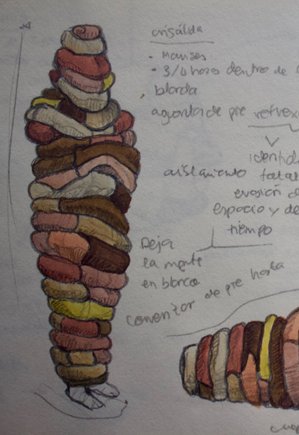 crisálida
- Mouses
- 3/4 horas dentro de
blanda
aguantar de pie
identid
aislamiento total
evasión d
espacio y de
tiempo
Deja
la mente
en blanco
comenzar de pie hasta